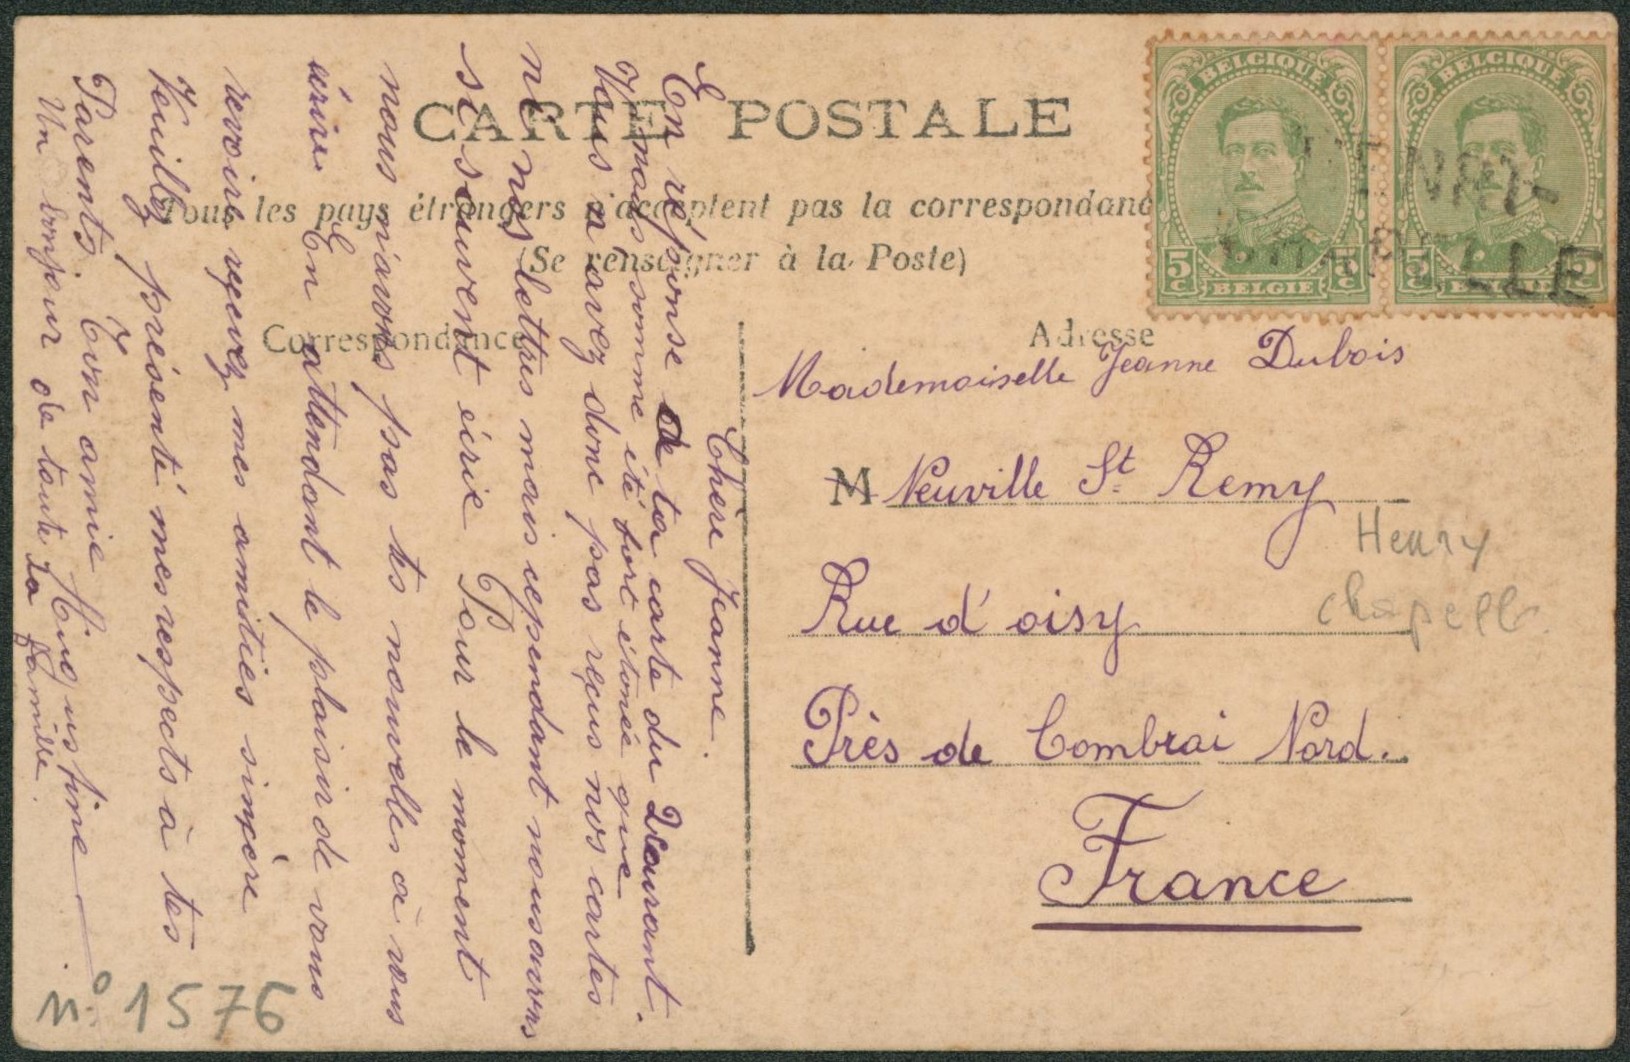 CARTE POSTALE
Tous les pays étrangers n'acceptent pas la correspondance
(Se renseigner à la Poste)
Correspondance
Adresse
BELGIQUE
5 C
5 C
BELGIE
BELGIQUE
5 C
5 C
BELGIE
HENRI-
CHAPELLE
Chère Jeanne.
En réponse de ta carte du courant.
nous somme été fort étonée que
Vous n avez donc pas reçus nos cartes
ni nos lettres mais cependant nous avons
si souvent écrie Pour le moment
nous n'avons pas tes nouvelles à vous
écrire. En attendant le plaisir de vous
revoire reçevez mes amitiés sinçère
Veuillez présenté mes respects à tes
Parents. Ton amie
Un bonjour de toute la famille.
Mademoiselle Jeanne Dubois
M Neuville St Remy
Rue d'oisy
Près de Cambrai Nord.
France
Henry
chapelle
n° 1576